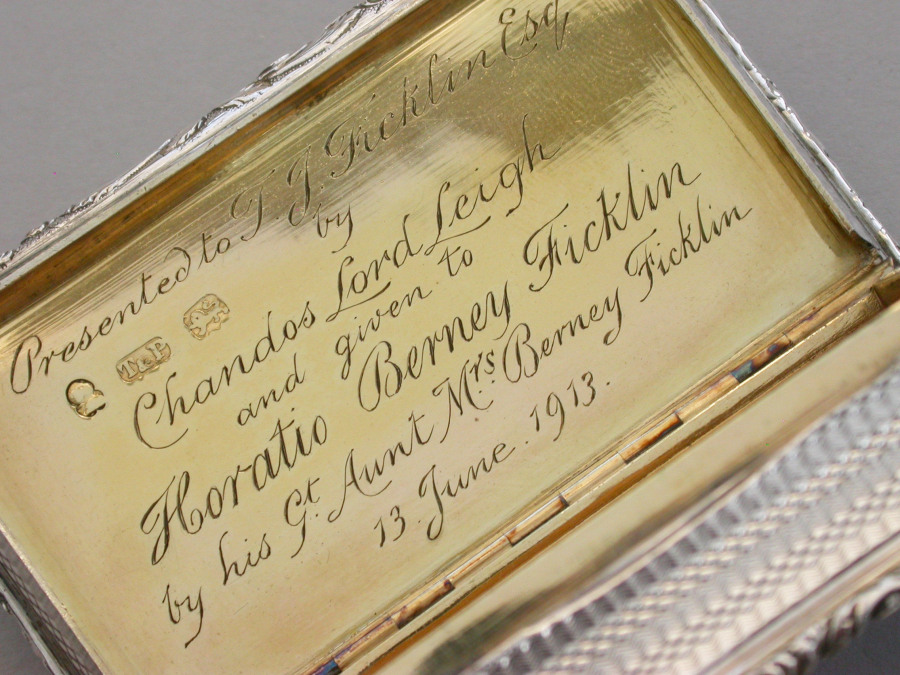 Presented to T. J. Ficklin Esq
by
T&P
Chandos Lord Leigh
and given to
Horatio Berney Ficklin
by his Gt. Aunt Mrs. Berney Ficklin
13 June. 1913.